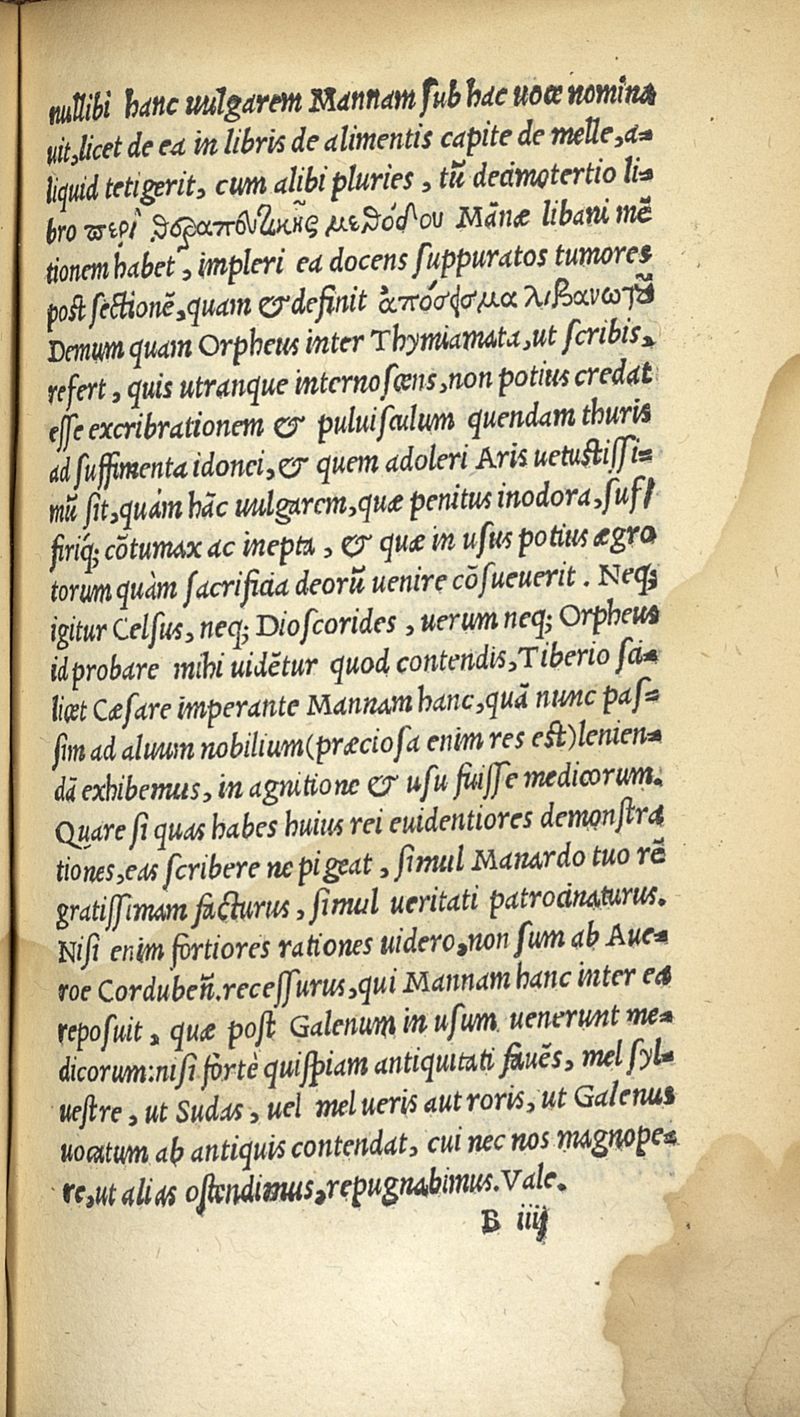 nullibi hanc uulgarem Mannam sub hac uoce nomina
uit, licet de ea in libris de alimentis capite de melle, a-
liquid tetigerit, cum alibi pluries, tũ decimotertio li-
bro περὶ θεραπευτικῆς μεθόδου Mãnæ libani mẽ
tionem habet, impleri ea docens suppuratos tumores
post sectionẽ, quam & definit ἀπόσεισμα λιβανωτοῦ
Demum quam Orpheus inter Thymiamata, ut scribis,
refert, quis utranque internoscens, non potius credat
esse excribrationem & puluisculum quendam thuris
ad suffimenta idonei, & quem adoleri Aris uetustissi-
mũ sit, quàm hãc uulgarem, quæ penitus inodora, suf
firiq; cõtumax ac inepta, & quæ in usus potius ægro
torum quàm sacrificia deorũ uenire cõsueuerit. Neq;
igitur Celsus, neq; Dioscorides, uerum neq; Orpheus
id probare mihi uidẽtur quod contendis, Tiberio sci-
licet Cæsare imperante Mannam hanc, quã nunc pas-
sim ad aluum nobilium (præciosa enim res est) lenien-
dã exhibemus, in agnitione & usu fuisse medicorum.
Quare si quas habes huius rei euidentiores demonstra
tiones, eas scribere ne pigeat, simul Manardo tuo rẽ
gratissimam facturus, simul ueritati patrocinaturus.
Nisi enim fortiores rationes uidero, non sum ab Aue-
roe Cordubeñ. recessurus, qui Mannam hanc inter ea
reposuit, quæ post Galenum in usum uenerunt me-
dicorum: nisi fortè quispiam antiquitati fauẽs, mel syl-
uestre, ut Sudas, uel mel ueris aut roris, ut Galenus
uocatum ab antiquis contendat, cui nec nos magnope-
re, ut alias ostendimus, repugnabimus. Vale.
B iiij